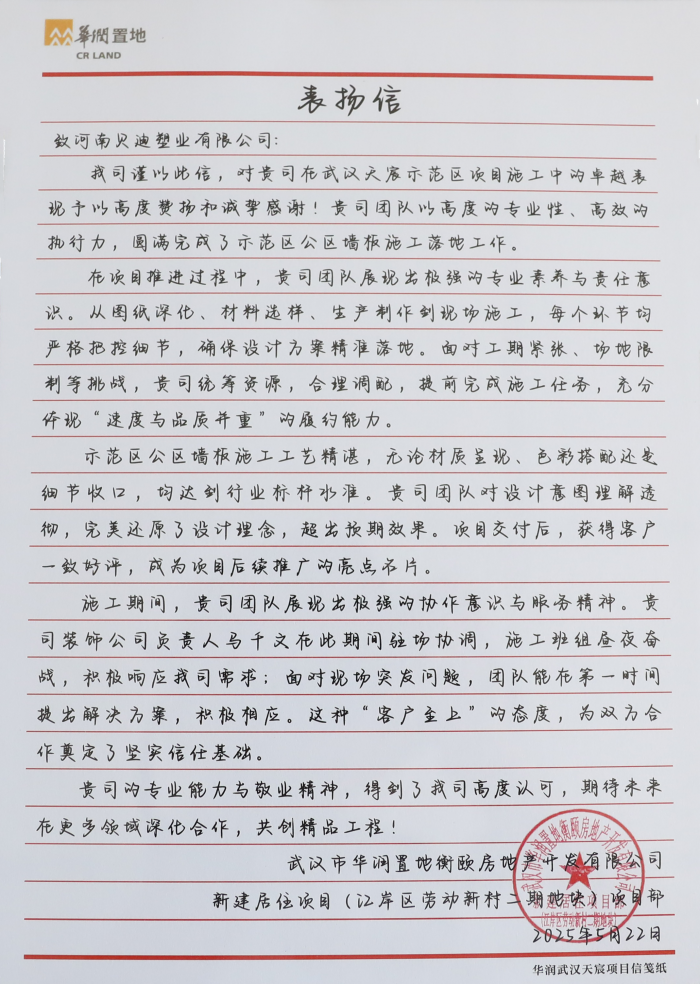 华润置地
CR LAND
表扬信
致河南贝迪塑业有限公司：
我司谨以此信，对贵司在武汉天宸示范区项目施工中的卓越表
现予以高度赞扬和诚挚感谢！贵司团队以高度的专业性、高效的
执行力，圆满完成了示范区公区墙板施工落地工作。
在项目推进过程中，贵司团队展现出极强的专业素养与责任意
识。从图纸深化、材料选样、生产制作到现场施工，每个环节均
严格把控细节，确保设计方案精准落地。面对工期紧张、场地限
制等挑战，贵司统筹资源，合理调配，提前完成施工任务，充分
体现“速度与品质并重”的履约能力。
示范区公区墙板施工工艺精湛，无论材质呈现、色彩搭配还是
细节收口，均达到行业标杆水准。贵司团队对设计意图理解透
彻，完美还原了设计理念，超出预期效果。项目交付后，获得客户
一致好评，成为项目后续推广的亮点名片。
施工期间，贵司团队展现出极强的协作意识与服务精神。贵
司装饰公司负责人马千文在此期间驻场协调，施工班组昼夜奋
战，积极响应我司需求；面对现场突发问题，团队能在第一时间
提出解决方案，积极相应。这种“客户至上”的态度，为双方合
作奠定了坚实信任基础。
贵司的专业能力与敬业精神，得到了我司高度认可，期待未来
在更多领域深化合作，共创精品工程！
武汉市华润置地衡颐房地产开发有限公司
新建居住项目（江岸区劳动新村二期地块）项目部
2025年5月22日
武汉市华润置地衡颐房地产开发有限公司
新建居住项目部
(江岸区劳动新村二期地块)
华润武汉天宸项目信笺纸